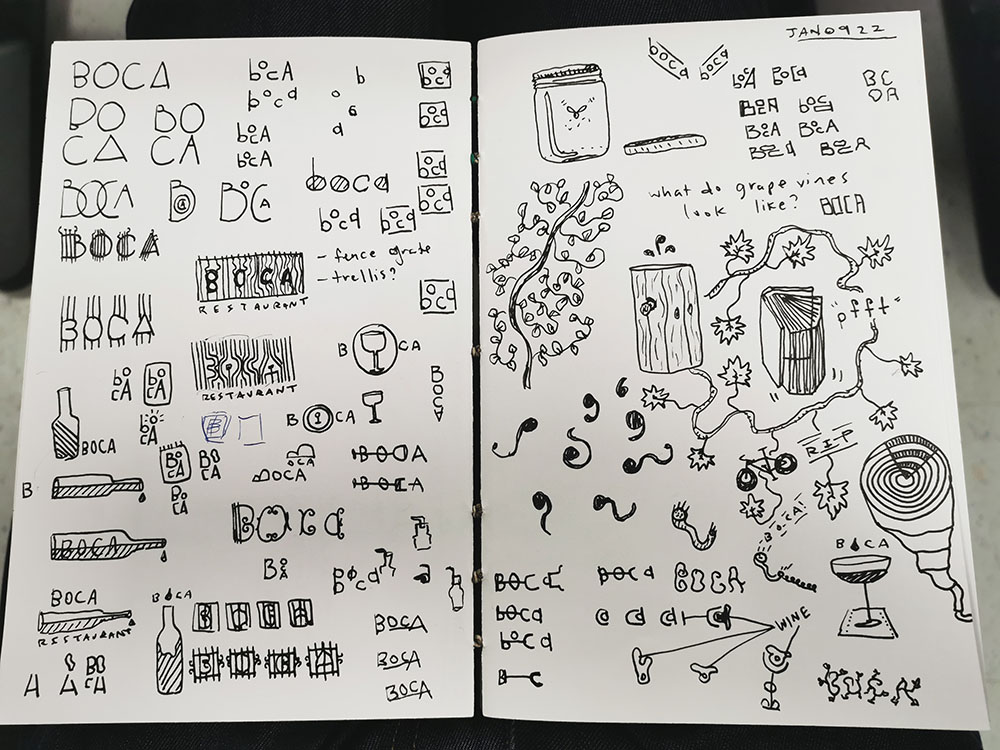 BOCA
BO
CA
BO
CA
BOCA
BOCA
BOCA
BOCA
bocA
boca
bocA
bocA
b
o
c
a
boca
boca
boca
boca
boca
boca
boca
boca
- fence grate
- trellis?
BOCA
RESTAURANT
BOCA
RESTAURANT
B CA
B CA
BOCA
BOCA
boCA
boCA
bOCA
BOCA
BOCA
BOCA
B
BOCA
BOCA
BOCA
OCA
BOCA
BOCA
BOCA
BOCA
BOCA
Boca
BOCA
RESTAURANT
B CA
BOCA
BOCA
BOCA
BOCA
BOCA
A
BOCA
JAN 09 22
boca
boca
BOCA
BOCA
BOCA
BOCA
BOCA
what do grape vines
look like?
BOCA
"pfft"
R.I.P
BOCA
B CA
BOCA
BOCA
BOCA
BOCA
BOCA
WINE
BO
BOCA